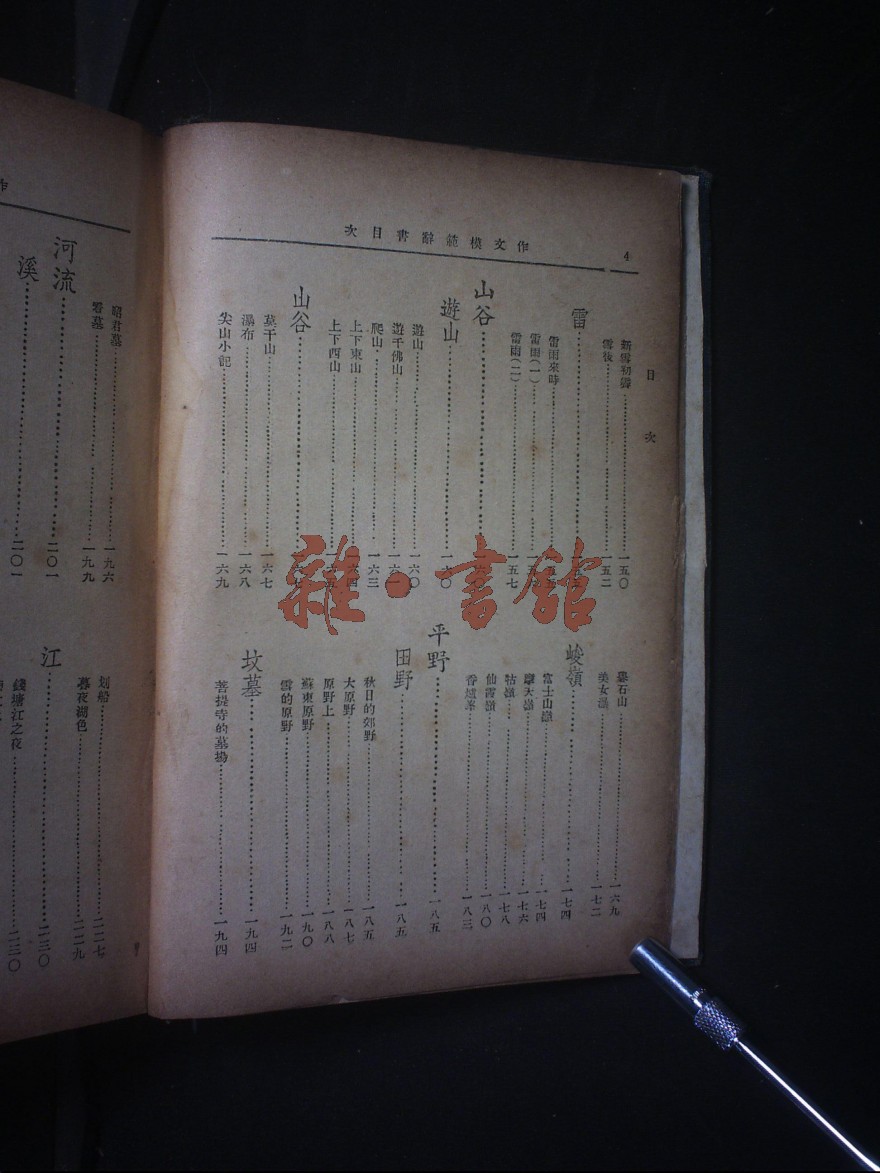 作文模範辭書目次
4
目次
新雪初霽 一五〇
雪後 一五二
雷
雷雨來時
雷雨(一)
雷雨(二) 一五七
山谷
遊山 一六〇
遊山 一六〇
遊千佛山
爬山 一六三
上下東山
上下西山
山谷
莫干山 一六七
瀑布 一六八
尖山小記 一六九
石山 一六九
美女 一七二
峻嶺 一七四
富士山 一七四
摩天嶺 一七六
牯嶺 一七八
仙霞嶺 一八〇
香爐峯 一八三
平野 一八五
田野 一八五
秋日的郊野 一八五
大原野 一八七
原野上 一八八
蘇東原野 一九〇
雪的原野 一九二
坟墓 一九四
菩提寺的墓場 一九四
雜·書館
作
昭君墓 一九六
看墓 一九九
河流 二〇一
溪 二〇一
划船 二二七
暮夜湖色 二二九
江 二三〇
錢塘江之夜 二三〇